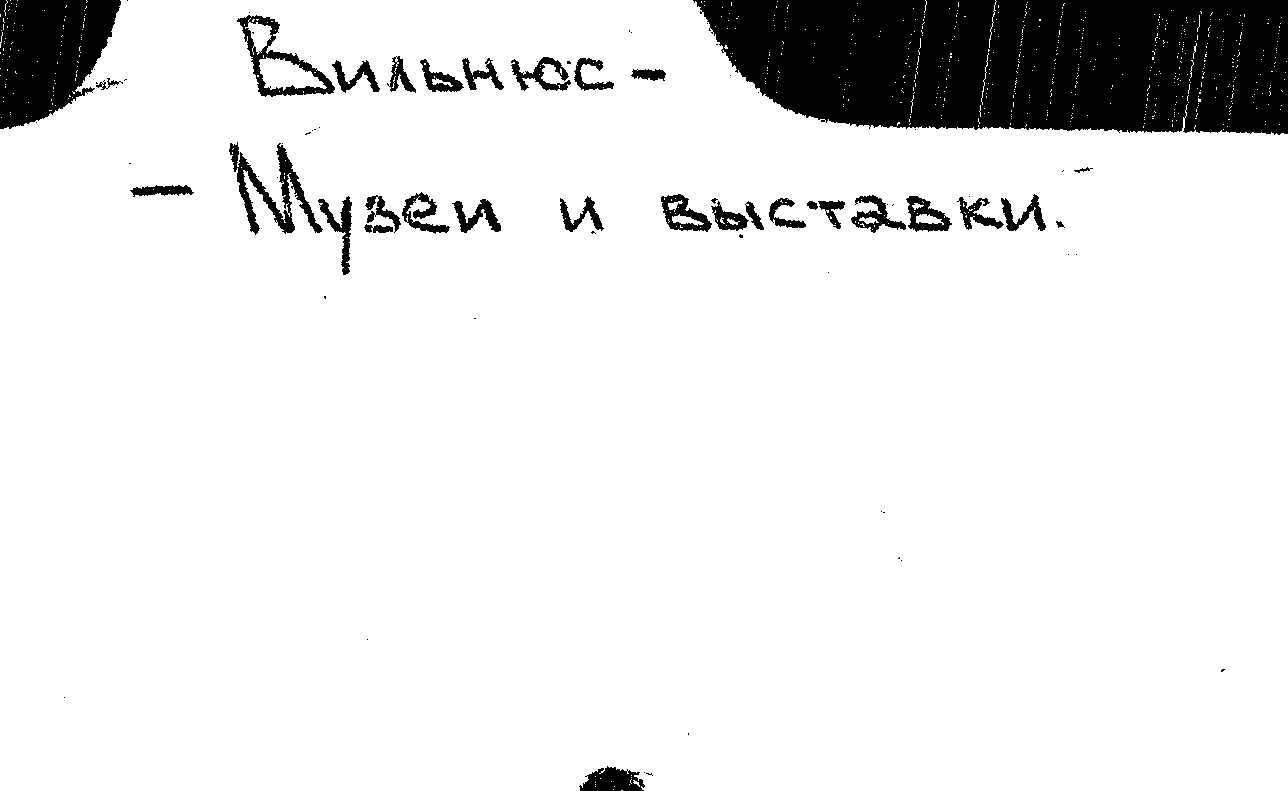 Вильнюс -
- Музеи и выставки.